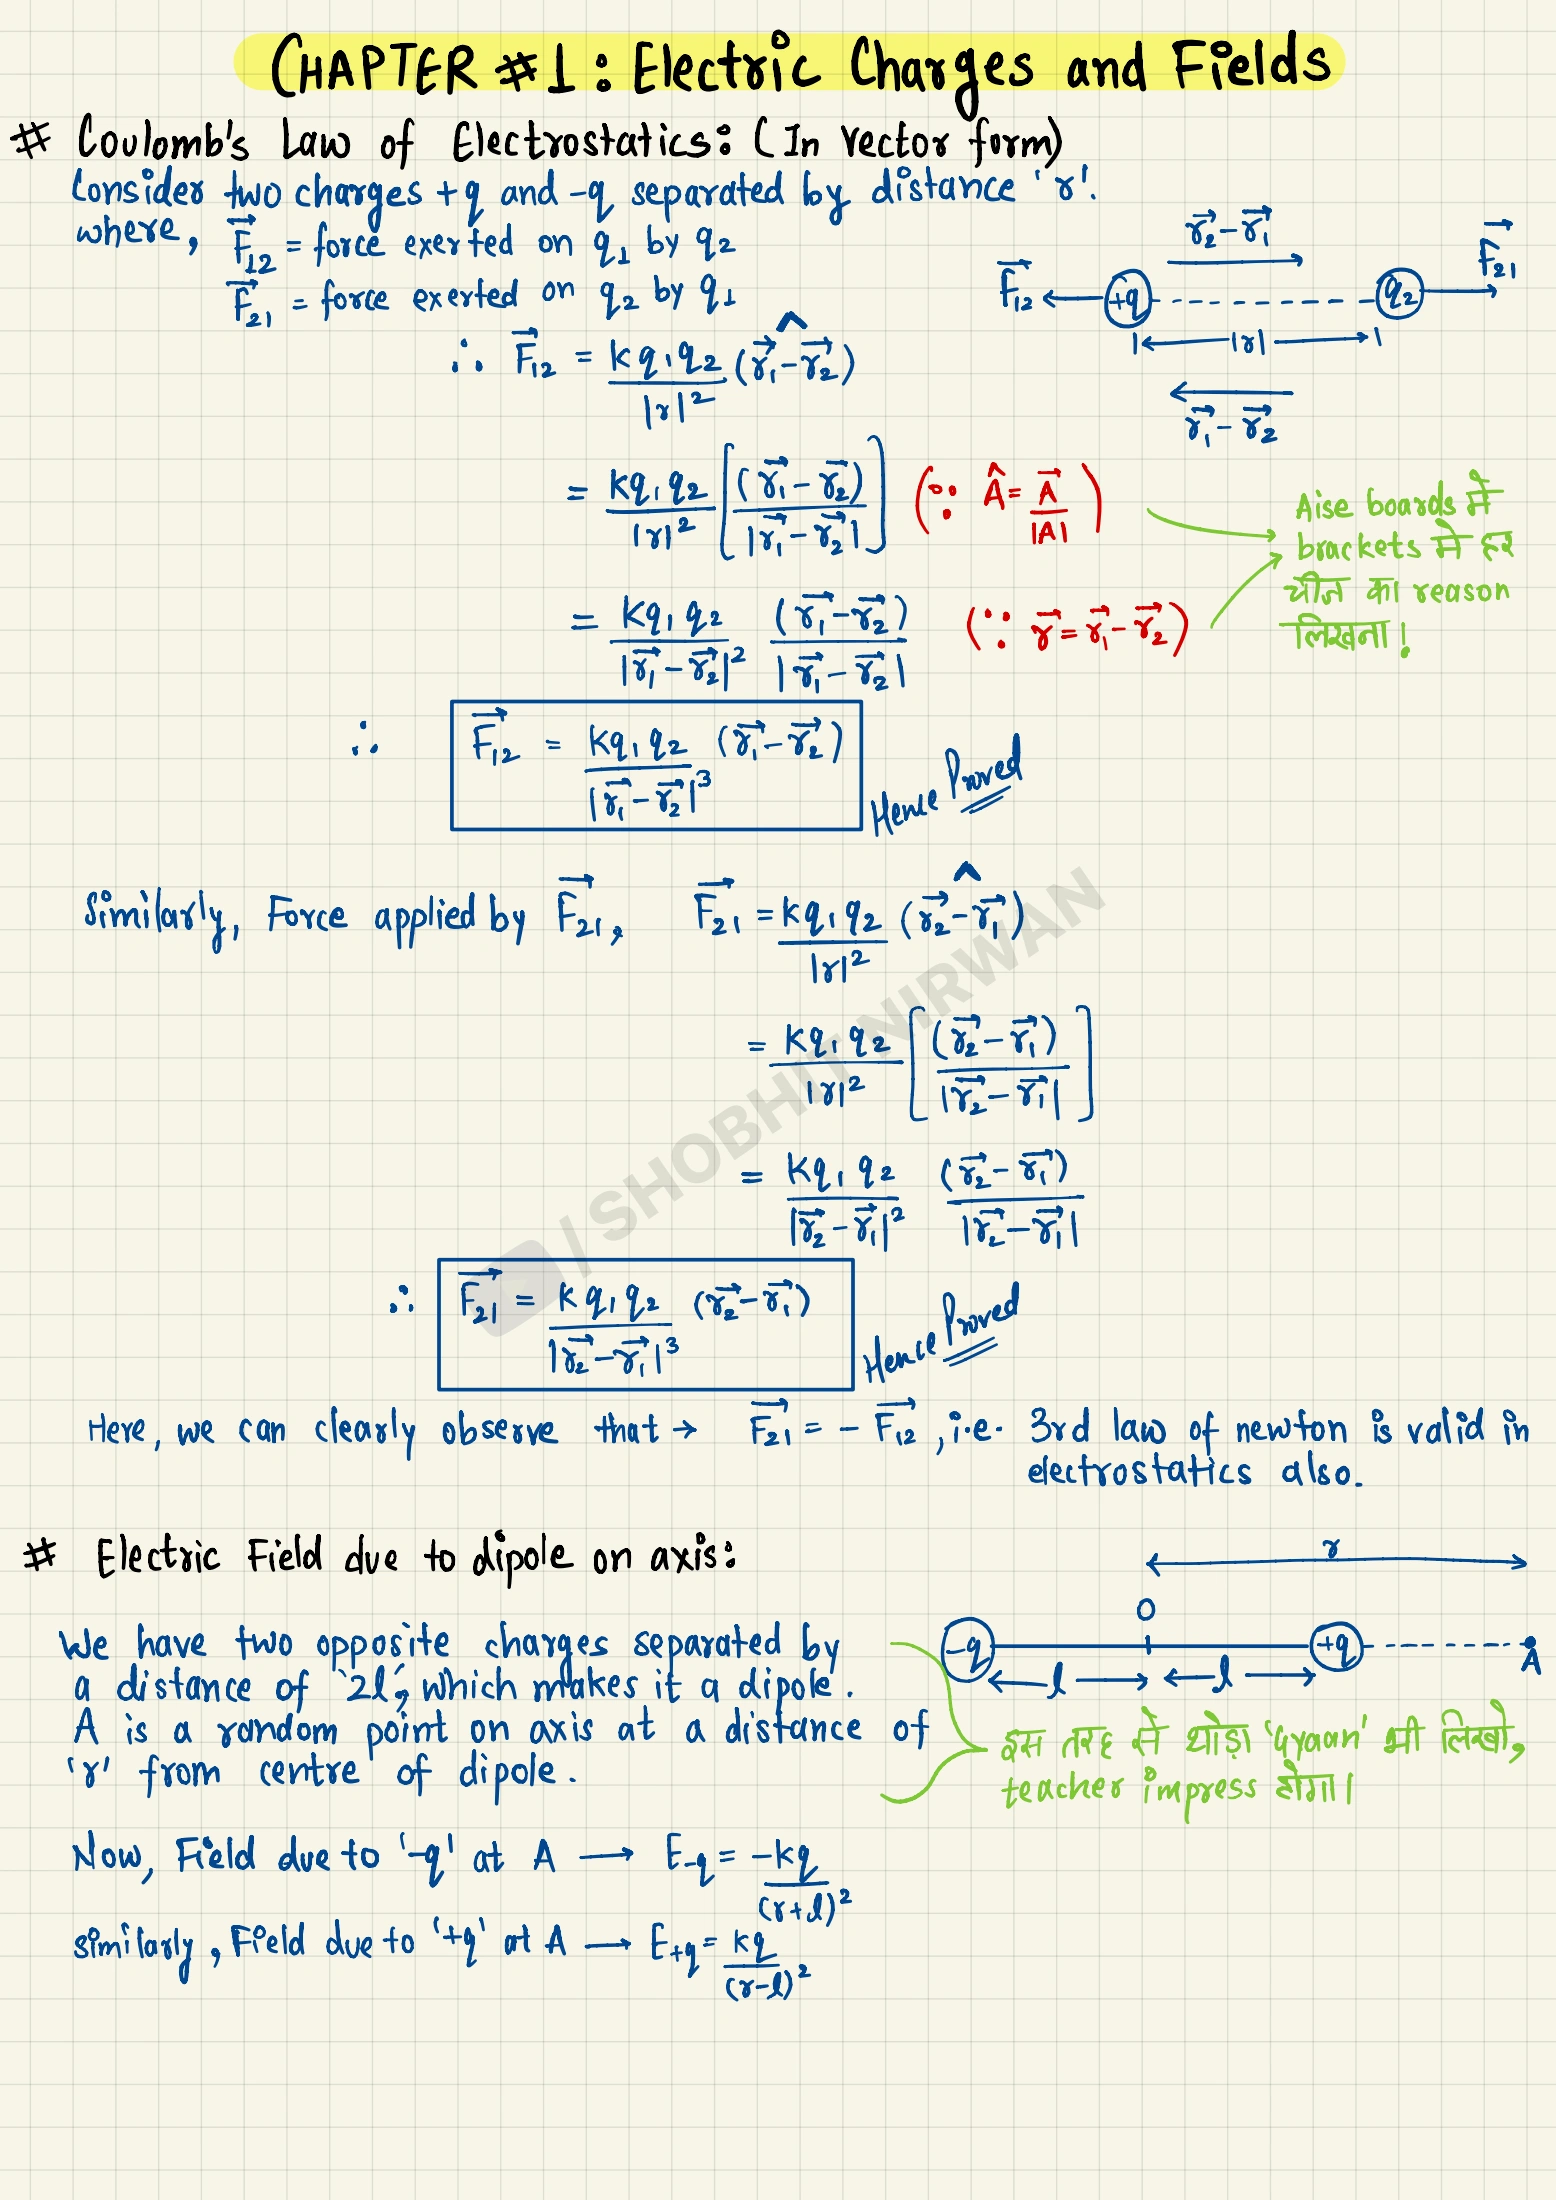 CHAPTER #1: Electric Charges and Fields
# Coulomb's Law of Electrostatics: (In vector form)
Consider two charges +q and -q separated by distance 'r'.
where, F⃗₁₂ = force exerted on q₁ by q₂
F⃗₂₁ = force exerted on q₂ by q₁
r⃗₂-r⃗₁
F⃗₁₂ +q q₂ F⃗₂₁
|r|
r⃗₁-r⃗₂
∴ F⃗₁₂ = Kq₁q₂/|r|² (r⃗₁-r⃗₂)^
= Kq₁q₂/|r|² [(r⃗₁-r⃗₂)/|r⃗₁-r⃗₂|] (∵ Â = A⃗/|A|)
= Kq₁q₂/|r⃗₁-r⃗₂|² (r⃗₁-r⃗₂)/|r⃗₁-r⃗₂| (∵ r⃗ = r⃗₁-r⃗₂)
Aise boards में
brackets में हर
चीज का reason
लिखना!
∴ F⃗₁₂ = Kq₁q₂/|r⃗₁-r⃗₂|³ (r⃗₁-r⃗₂) Hence Proved
Similarly, Force applied by F⃗₂₁, F⃗₂₁ = Kq₁q₂/|r|² (r⃗₂-r⃗₁)^
= Kq₁q₂/|r|² [(r⃗₂-r⃗₁)/|r⃗₂-r⃗₁|]
= Kq₁q₂/|r⃗₂-r⃗₁|² (r⃗₂-r⃗₁)/|r⃗₂-r⃗₁|
∴ F⃗₂₁ = Kq₁q₂/|r⃗₂-r⃗₁|³ (r⃗₂-r⃗₁) Hence Proved
/ SHOBHIT NIRWAN
Here, we can clearly observe that → F⃗₂₁ = - F⃗₁₂, i.e. 3rd law of newton is valid in
electrostatics also.
# Electric Field due to dipole on axis:
r
O
-q +q A
l l
We have two opposite charges separated by
a distance of '2l', which makes it a dipole.
A is a random point on axis at a distance of
'r' from centre of dipole.
इस तरह से थोड़ा 'Gyaan' भी लिखो,
teacher impress होगा।
Now, Field due to '-q' at A → E₋q = -kq/(r+l)²
similarly, Field due to '+q' at A → E₊q = kq/(r-l)²